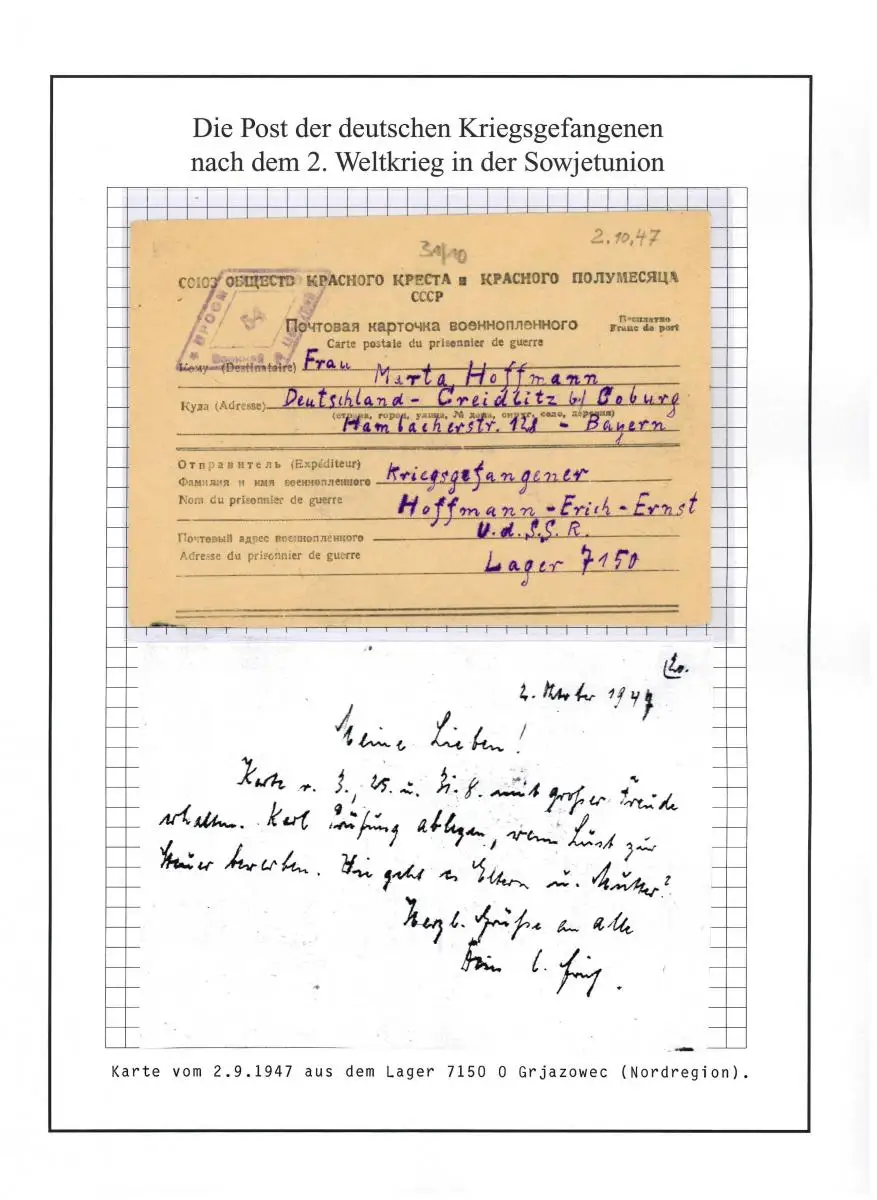 Die Post der deutschen Kriegsgefangenen
nach dem 2. Weltkrieg in der Sowjetunion
2.10.47
31/10
СОЮЗ ОБЩЕСТВ КРАСНОГО КРЕСТА и КРАСНОГО ПОЛУМЕСЯЦА
СССР
Почтовая карточка военнопленного
Бесплатно
Franc de port
Carte postale du prisonnier de guerre
Кому (Destinataire) Frau
Marta Hoffmann
Куда (Adresse) Deutschland - Creidlitz b/ Coburg
(страна, город, улица, № дома, округ, село, деревня)
Hambacherstr. 128 - Bayern
Отправитель (Expéditeur)
Фамилия и имя военнопленного Kriegsgefangener
Nom du prisonnier de guerre Hoffmann - Erich - Ernst
U.d.S.S.R.
Почтовый адрес военнопленного
Adresse du prisonnier de guerre Lager 7150
20.
2. Oktober 1947
Meine Lieben!
Karte v. 3., 25. u. 31.8. mit großer Freude
erhalten. Karl Prüfung ablegen, wenn Lust zur
Steuer bewerben. Wie geht es Eltern u. Mutter?
Herzl. Grüße an alle
Dein l.
Karte vom 2.9.1947 aus dem Lager 7150 O Grjazowec (Nordregion).